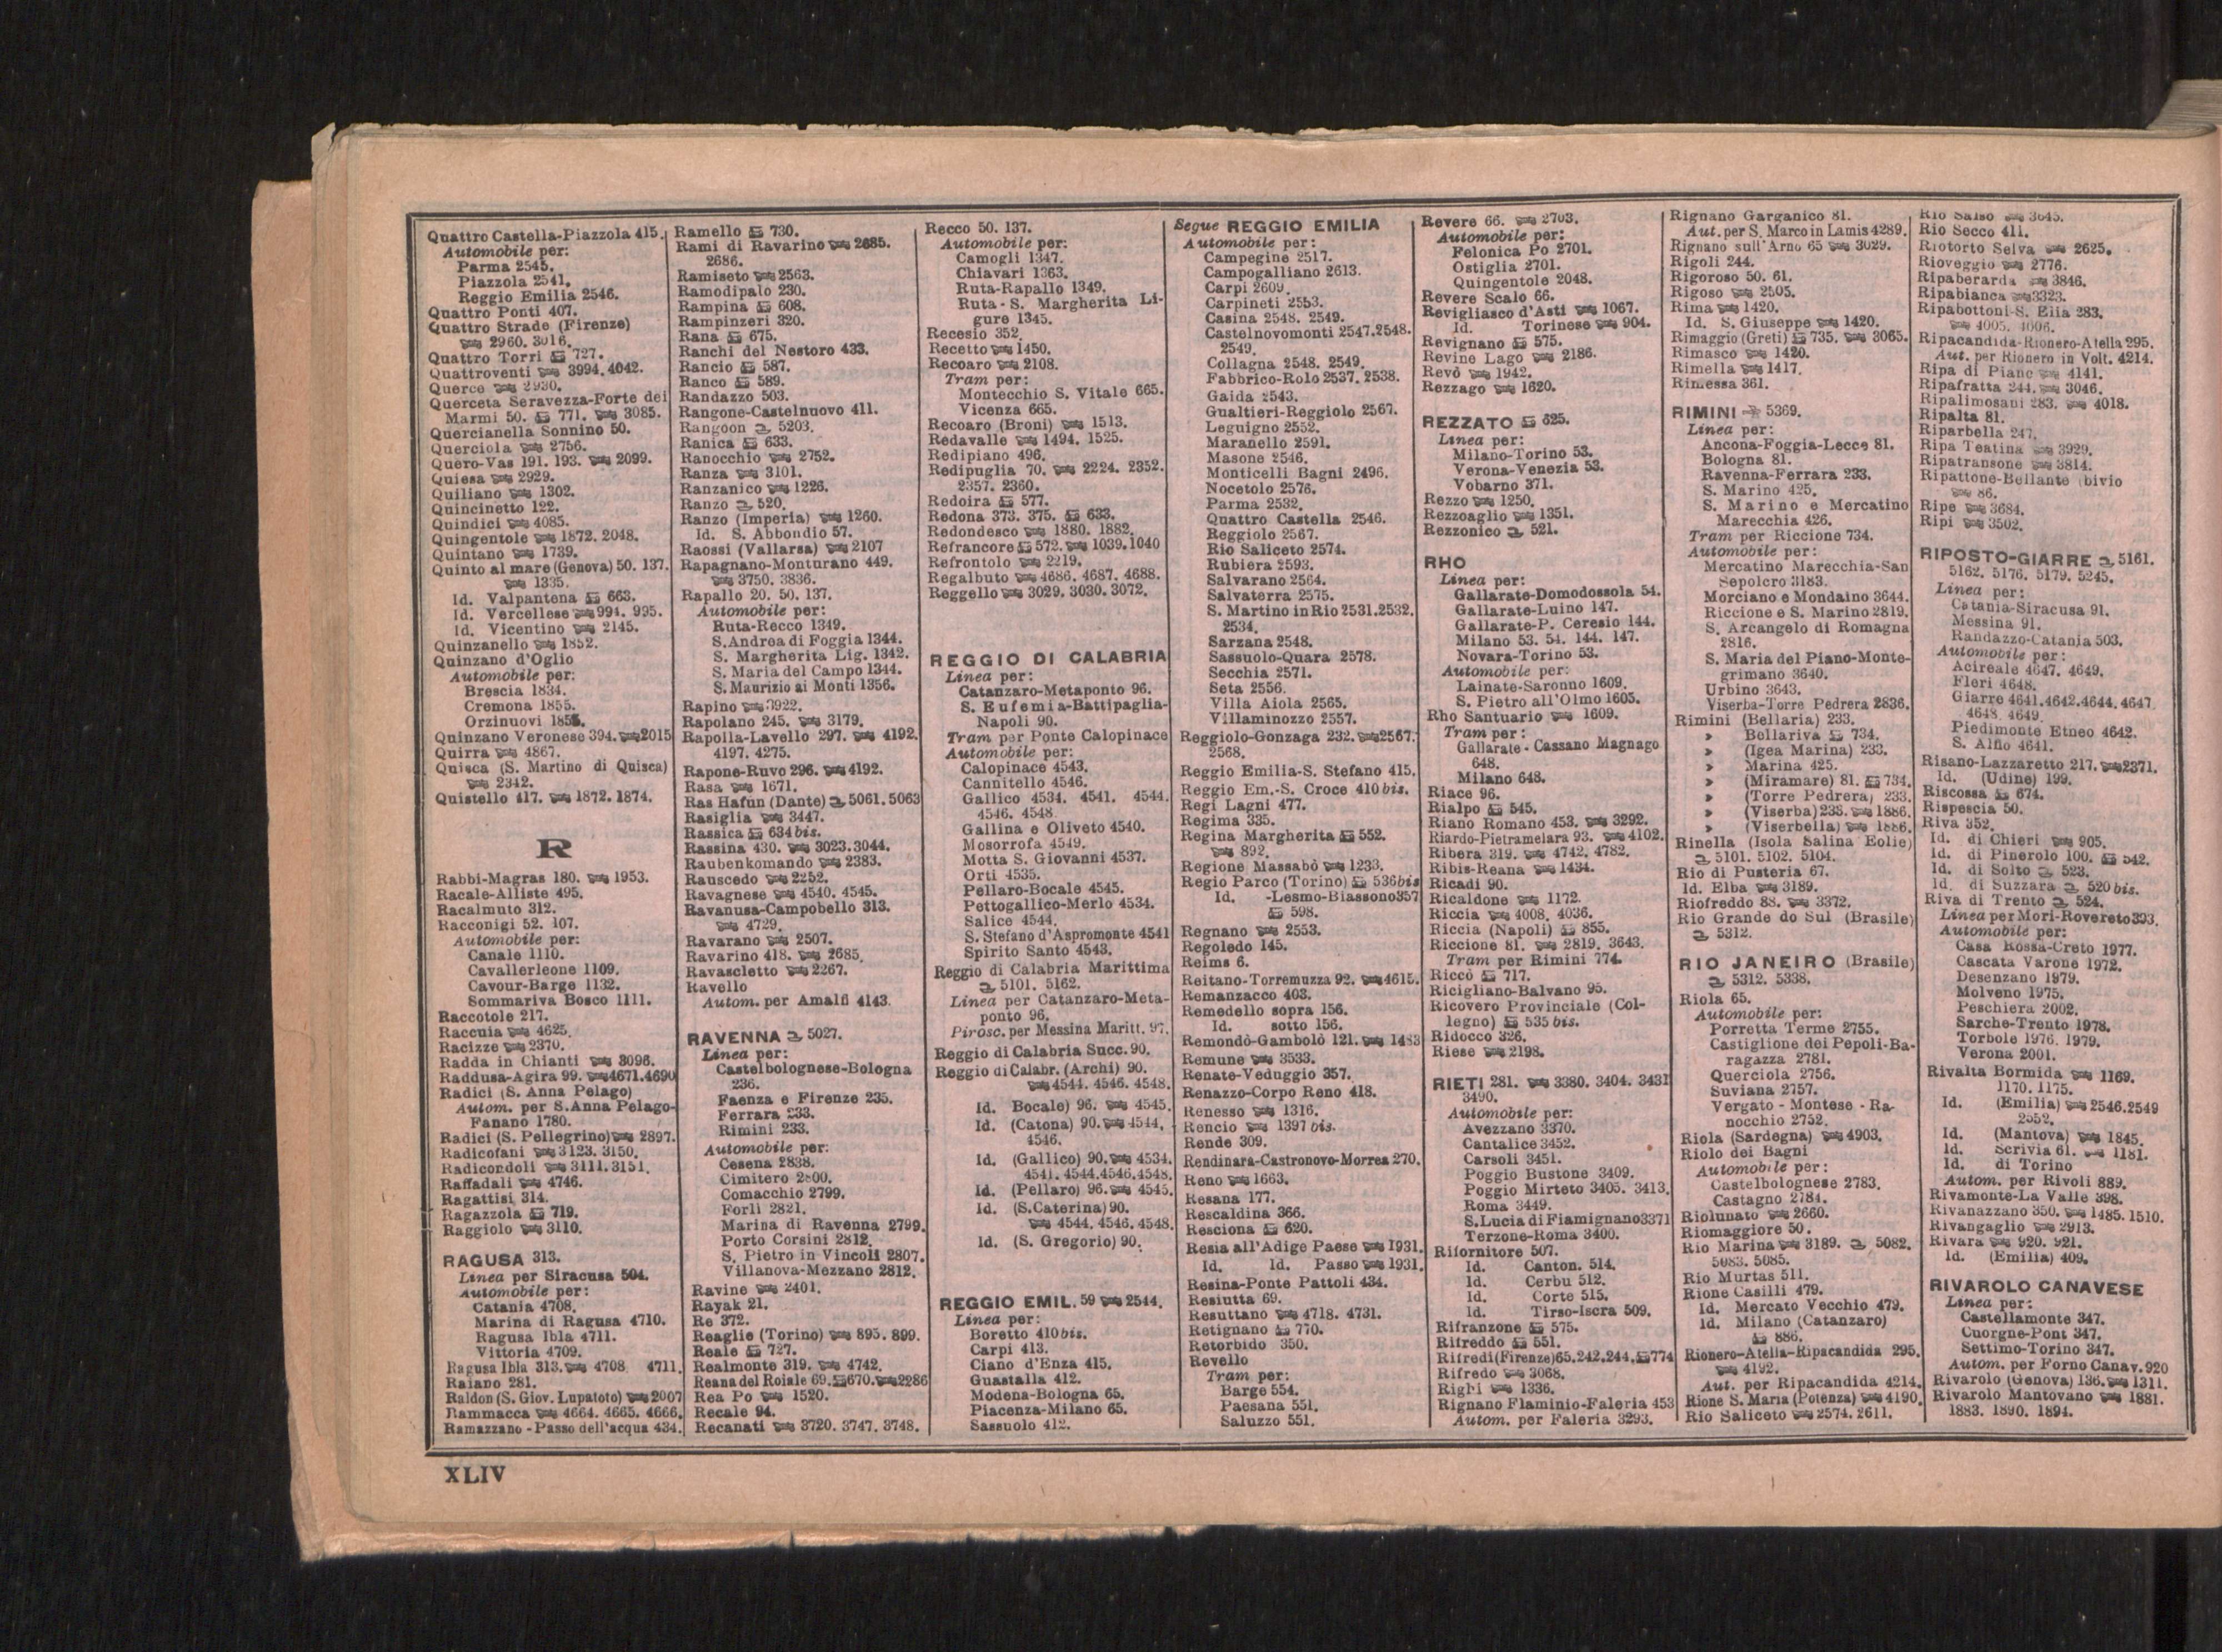 Quattro Castella-Piazzola 415.
Automobile per:
Parma 2545.
Piazzola 2541.
Reggio Emilia 2546.
Quattro Ponti 407.
Quattro Strade (Firenze)
2960. 3016.
Quattro Torri 727.
Quattroventi 3994. 4042.
Querce 2930.
Querceta Seravezza-Forte dei
Marmi 50. 771. 3085.
Quercianella Sonnino 50.
Querciola 2756.
Quero-Vas 191. 193. 2099.
Quiesa 2929.
Quiliano 1302.
Quincinetto 122.
Quindici 4085.
Quingentole 1872. 2048.
Quintano 1739.
Quinto al mare (Genova) 50. 137.
1335.
Id. Valpantena 663.
Id. Vercellese 994. 995.
Id. Vicentino 2145.
Quinzanello 1852.
Quinzano d'Oglio
Automobile per:
Brescia 1834.
Cremona 1855.
Orzinuovi
Quinzano Veronese 394. 2015
Quirra 4867.
Quisca (S. Martino di Quisca)
2342.
Quistello 417. 1872. 1874.
R
Rabbi-Magras 180. 1953.
Racale-Alliste 495.
Racalmuto 312.
Racconigi 52. 107.
Automobile per:
Canale 1110.
Cavallerleone 1109.
Cavour-Barge 1132.
Sommariva Bosco 1111.
Raccotole 217.
Raccuia 4625.
Racizze 2370.
Radda in Chianti 3096.
Raddusa-Agira 99. 4671. 4690
Radici (S. Anna Pelago)
Autom. per S. Anna Pelago-
Fanano 1780.
Radici (S. Pellegrino) 2897.
Radicofani 3123. 3150.
Radicondoli 3111. 3151.
Raffadali 4746.
Ragattisi 314.
Ragazzola 719.
Raggiolo 3110.
RAGUSA 313.
Linea per Siracusa 504.
Automobile per:
Catania 4708.
Marina di Ragusa 4710.
Ragusa Ibla 4711.
Vittoria 4709.
Ragusa Ibla 313. 4708 4711.
Raiano 281.
Raldon (S. Giov. Lupatoto) 2007
Rammacca 4664. 4665. 4666.
Ramazzano - Passo dell'acqua 434.
Ramello 730.
Rami di Ravarino 2685.
2686.
Ramiseto 2563.
Ramodipalo 230.
Rampina 608.
Rampinzeri 320.
Rana 675.
Ranchi del Nestoro 433.
Rancio 587.
Ranco 589.
Randazzo 503.
Rangone-Castelnuovo 411.
Rangoon 5203.
Ranica 633.
Ranocchio 2752.
Ranza 3101.
Ranzanico 1226.
Ranzo 520.
Ranzo (Imperia) 1260.
Id. S. Abbondio 57.
Raossi (Vallarsa) 2107
Rapagnano-Monturano 449.
3750. 3836.
Rapallo 20. 50. 137.
Automobile per:
Ruta-Recco 1349.
S. Andrea di Foggia 1344.
S. Margherita Lig. 1342.
S. Maria del Campo 1344.
S. Maurizio ai Monti 1356.
Rapino 3922.
Rapolano 245. 3179.
Rapolla-Lavello 297. 4192.
4197. 4275.
Rapone-Ruvo 296. 4192.
Rasa 1671.
Ras Hafun (Dante) 5061. 5063
Rasiglia 3447.
Rassica 634 bis.
Rassina 430. 3023. 3044.
Raubenkomando 2383.
Rauscedo 2252.
Ravagnese 4540. 4545.
Ravanusa-Campobello 313.
4729.
Ravarano 2507.
Ravarino 418. 2685.
Ravascletto 2267.
Ravello
Autom. per Amalfi 4143.
RAVENNA 5027.
Linea per:
Castelbolognese-Bologna
236.
Faenza e Firenze 235.
Ferrara 233.
Rimini 233.
Automobile per:
Cesena 2838.
Cimitero 2800.
Comacchio 2799.
Forlì 2821.
Marina di Ravenna 2799.
Porto Corsini 2812.
S. Pietro in Vincoli 2807.
Villanova-Mezzano 2812.
Ravine 2401.
Rayak 21.
Re 372.
Reaglie (Torino) 895. 899.
Reale 727.
Realmonte 319. 4742.
Reana del Roiale 69. 670. 2286
Rea Po 1520.
Recale 94.
Recanati 3720. 3747. 3748.
Recco 50. 137.
Automobile per:
Camogli 1347.
Chiavari 1363.
Ruta-Rapallo 1349.
Ruta - S. Margherita Li-
gure 1345.
Recesio 352.
Recetto 1450.
Recoaro 2108.
Tram per:
Montecchio S. Vitale 665.
Vicenza 665.
Recoaro (Broni) 1513.
Redavalle 1494. 1525.
Redipiano 496.
Redipuglia 70. 2224. 2352.
2357. 2360.
Redoira 577.
Redona 373. 375. 633.
Redondesco 1880. 1882.
Refrancore 572. 1039. 1040
Refrontolo 2219.
Regalbuto 4686. 4687. 4688.
Reggello 3029. 3030. 3072.
REGGIO DI CALABRIA
Linea per:
Catanzaro-Metaponto 96.
S. Eufemia-Battipaglia-
Napoli 90.
Tram per Ponte Calopinace
Automobile per:
Calopinace 4543.
Cannitello 4546.
Gallico 4534. 4541. 4544.
4546. 4548.
Gallina e Oliveto 4540.
Mosorrofa 4549.
Motta S. Giovanni 4537.
Orti 4535.
Pellaro-Bocale 4545.
Pettogallico-Merlo 4534.
Salice 4544.
S. Stefano d'Aspromonte 4541
Spirito Santo 4543.
Reggio di Calabria Marittima
5101. 5162.
Linea per Catanzaro-Meta-
ponto 96.
Pirosc. per Messina Maritt. 97.
Reggio di Calabria Succ. 90.
Reggio di Calabr. (Archi) 90.
4544. 4546. 4548.
Id. Bocale) 96. 4545.
Id. (Catona) 90. 4544.
4546.
Id. (Gallico) 90. 4534.
4541. 4544. 4546. 4548.
Id. (Pellaro) 96. 4545.
Id. (S. Caterina) 90.
4544. 4546. 4548.
Id. (S. Gregorio) 90.
REGGIO EMIL. 59 2544.
Linea per:
Boretto 410 bis.
Carpi 413.
Ciano d'Enza 415.
Guastalla 412.
Modena-Bologna 65.
Piacenza-Milano 65.
Sassuolo 412.
Segue REGGIO EMILIA
Automobile per:
Campegine 2517.
Campogalliano 2613.
Carpi 2609.
Carpineti 2553.
Casina 2548. 2549.
Castelnovomonti 2547. 2548.
2549.
Collagna 2548. 2549.
Fabbrico-Rolo 2537. 2538.
Gaida 2543.
Gualtieri-Reggiolo 2567.
Leguigno 2552.
Maranello 2591.
Masone 2546.
Monticelli Bagni 2496.
Nocetolo 2576.
Parma 2532.
Quattro Castella 2546.
Reggiolo 2567.
Rio Saliceto 2574.
Rubiera 2593.
Salvarano 2564.
Salvaterra 2575.
S. Martino in Rio 2531. 2532.
2534.
Sarzana 2548.
Sassuolo-Quara 2578.
Secchia 2571.
Seta 2556.
Villa Aiola 2565.
Villaminozzo 2557.
Reggiolo-Gonzaga 232. 2567.
2568.
Reggio Emilia-S. Stefano 415.
Reggio Em.-S. Croce 410 bis.
Regi Lagni 477.
Regima 335.
Regina Margherita 552.
892.
Regione Massabò 1233.
Regio Parco (Torino) 536 bis
Id. -Lesmo-Biassono 357
598.
Regnano 2553.
Regoledo 145.
Reims 6.
Reitano-Torremuzza 92. 4615.
Remanzacco 403.
Remedello sopra 156.
Id. sotto 156.
Remondò-Gambolò 121. 1483
Remune 3533.
Renate-Veduggio 357.
Renazzo-Corpo Reno 418.
Renesso 1316.
Rencio 1397 bis.
Rende 309.
Rendinara-Castronovo-Morrea 270.
Reno 1663.
Resana 177.
Rescaldina 366.
Resciona 620.
Resia all'Adige Paese 1931.
Id. Id. Passo 1931.
Resina-Ponte Pattoli 434.
Resiutta 69.
Resuttano 4718. 4731.
Retignano 770.
Retorbido 350.
Revello
Tram per:
Barge 554.
Paesana 551.
Saluzzo 551.
Revere 66. 2703.
Automobile per:
Felonica Po 2701.
Ostiglia 2701.
Quingentole 2048.
Revere Scalo 66.
Revigliasco d'Asti 1067.
Id. Torinese 904.
Revignano 575.
Revine Lago 2186.
Revò 1942.
Rezzago 1620.
REZZATO 625.
Linea per:
Milano-Torino 53.
Verona-Venezia 53.
Vobarno 371.
Rezzo 1250.
Rezzoaglio 1351.
Rezzonico 521.
RHO
Linea per:
Gallarate-Domodossola 54.
Gallarate-Luino 147.
Gallarate-P. Ceresio 144.
Milano 53. 54. 144. 147.
Novara-Torino 53.
Automobile per:
Lainate-Saronno 1609.
S. Pietro all'Olmo 1605.
Rho Santuario 1609.
Tram per:
Gallarate - Cassano Magnago
648.
Milano 648.
Riace 96.
Rialpo 545.
Riano Romano 453. 3292.
Riardo-Pietramelara 93. 4102.
Ribera 319. 4742. 4782.
Ribis-Reana 1434.
Ricadi 90.
Ricaldone 1172.
Riccia 4008. 4036.
Riccia (Napoli) 855.
Riccione 81. 2819. 3643.
Tram per Rimini 774.
Riccò 717.
Ricigliano-Balvano 95.
Ricovero Provinciale (Col-
legno) 535 bis.
Ridocco 326.
Riese 2198.
RIETI 281. 3380. 3404. 3431
3490.
Automobile per:
Avezzano 3370.
Cantalice 3452.
Carsoli 3451.
Poggio Bustone 3409.
Poggio Mirteto 3405. 3413.
Roma 3449.
S. Lucia di Fiamignano 3371
Terzone-Roma 3400.
Rifornitore 507.
Id. Canton. 514.
Id. Cerbu 512.
Id. Corte 515.
Id. Tirso-Iscra 509.
Rifranzone 575.
Rifreddo 551.
Rifredi (Firenze) 65. 242. 244. 774
Rifredo 3068.
Righi 1336.
Rignano Flaminio-Faleria 453
Autom. per Faleria 3293.
Rignano Garganico 81.
Aut. per S. Marco in Lamis 4289.
Rignano sull'Arno 65 3029.
Rigoli 244.
Rigoroso 50. 61.
Rigoso 2505.
Rima 1420.
Id. S. Giuseppe 1420.
Rimaggio (Greti) 735. 3065.
Rimasco 1420.
Rimella 1417.
Rimessa 361.
RIMINI 5369.
Linea per:
Ancona-Foggia-Lecce 81.
Bologna 81.
Ravenna-Ferrara 233.
S. Marino 425.
S. Marino e Mercatino
Marecchia 426.
Tram per Riccione 734.
Automobile per:
Mercatino Marecchia-San
Sepolcro 3183.
Morciano e Mondaino 3644.
Riccione e S. Marino 2819.
S. Arcangelo di Romagna
2816.
S. Maria del Piano-Monte-
grimano 3640.
Urbino 3643.
Viserba-Torre Pedrera 2836.
Rimini (Bellaria) 233.
» Bellariva 734.
» (Igea Marina) 233.
» Marina 425.
» (Miramare) 81. 734.
» (Torre Pedrera) 233.
» (Viserba) 233. 1886.
» (Viserbella) 1886.
Rinella (Isola Salina Eolie)
5101. 5102. 5104.
Rio di Pusteria 67.
Id. Elba 3189.
Riofreddo 88. 3372.
Rio Grande do Sul (Brasile)
5312.
RIO JANEIRO (Brasile)
5312. 5338.
Riola 65.
Automobile per:
Porretta Terme 2755.
Castiglione dei Pepoli-Ba-
ragazza 2781.
Querciola 2756.
Suviana 2757.
Vergato - Montese - Ra-
nocchio 2752.
Riola (Sardegna) 4903.
Riolo dei Bagni
Automobile per:
Castelbolognese 2783.
Castagno 2784.
Riolunato 2660.
Riomaggiore 50.
Rio Marina 3189. 5082.
5083. 5085.
Rio Murtas 511.
Rione Casilli 479.
Id. Mercato Vecchio 479.
Id. Milano (Catanzaro)
886.
Rionero-Atella-Ripacandida 295.
4192.
Aut. per Ripacandida 4214.
Rione S. Maria (Potenza) 4190.
Rio Saliceto 2574. 2611.
Rio Salso 3645.
Rio Secco 411.
Riotorto Selva 2625.
Rioveggio 2776.
Ripaberarda 3846.
Ripabianca 3323.
Ripabottoni-S. Elia 283.
4005. 4006.
Ripacandida-Rionero-Atella 295.
Aut. per Rionero in Volt. 4214.
Ripa di Piane 4141.
Ripafratta 244. 3046.
Ripalimosani 283. 4018.
Ripalta 81.
Riparbella 247.
Ripa Teatina 3929.
Ripatransone 3814.
Ripattone-Bellante (bivio
86.
Ripe 3684.
Ripi 3502.
RIPOSTO-GIARRE 5161.
5162. 5176. 5179. 5245.
Linea per:
Catania-Siracusa 91.
Messina 91.
Randazzo-Catania 503.
Automobile per:
Acireale 4647. 4649.
Fleri 4648.
Giarre 4641. 4642. 4644. 4647.
4648. 4649.
Piedimonte Etneo 4642.
S. Alfio 4641.
Risano-Lazzaretto 217. 2371.
Id. (Udine) 199.
Riscossa 674.
Rispescia 50.
Riva 352.
Id. di Chieri 905.
Id. di Pinerolo 100. 542.
Id. di Solto 523.
Id. di Suzzara 520 bis.
Riva di Trento 524.
Linea per Mori-Rovereto 393.
Automobile per:
Casa Rossa-Creto 1977.
Cascata Varone 1972.
Desenzano 1979.
Molveno 1975.
Peschiera 2002.
Sarche-Trento 1978.
Torbole 1976. 1979.
Verona 2001.
Rivalta Bormida 1169.
1170. 1175.
Id. (Emilia) 2546. 2549
2552.
Id. (Mantova) 1845.
Id. Scrivia 61. 1181.
Id. di Torino
Autom. per Rivoli 889.
Rivamonte-La Valle 398.
Rivanazzano 350. 1485. 1510.
Rivangaglio 2913.
Rivara 920. 921.
Id. (Emilia) 409.
RIVAROLO CANAVESE
Linea per:
Castellamonte 347.
Cuorgne-Pont 347.
Settimo-Torino 347.
Autom. per Forno Canav. 920
Rivarolo (Genova) 136. 1311.
Rivarolo Mantovano 1881.
1883. 1890. 1894.
XLIV